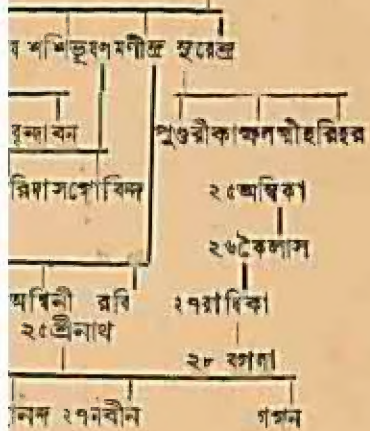 শশিভূষণ মণীন্দ্র সুরেন্দ্র
বৃন্দাবন পুণ্ডরীকাক্ষ লক্ষ্মী হরিহর
রিদাস গোবিন্দ ২৫ অম্বিকা
২৬ কৈলাস
অশ্বিনী রবি ২৭ রাধিকা
২৫ শ্রীনাথ
২৮ বগলা
নন্দ ২৭ নবীন গগন